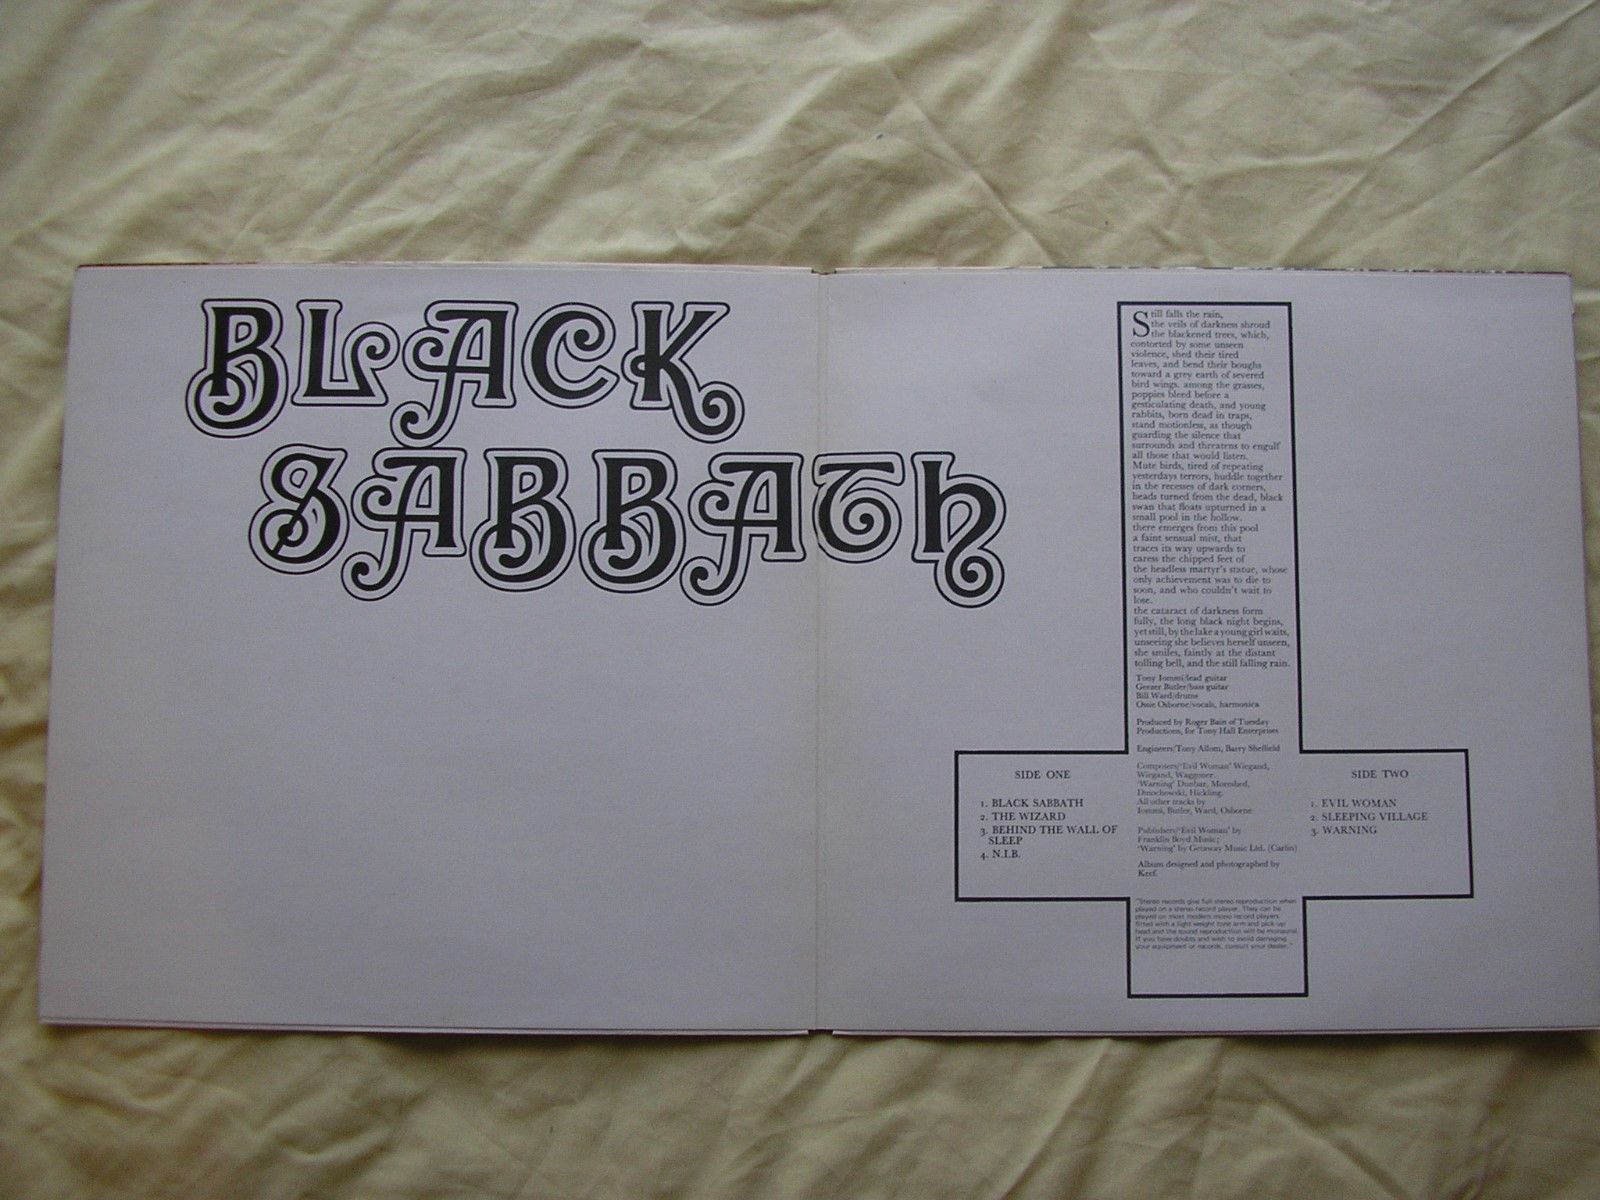 BLACK
SABBATH
Still falls the rain,
the veils of darkness shroud
the blackened trees, which,
contorted by some unseen
violence, shed their tired
leaves, and bend their boughs
toward a grey earth of severed
bird wings. among the grasses,
poppies bleed before a
gesticulating death, and young
rabbits, born dead in traps,
stand motionless, as though
guarding the silence that
surrounds and threatens to engulf
all those that would listen.
Mute birds, tired of repeating
yesterdays terrors, huddle together
in the recesses of dark corners,
heads turned from the dead, black
swan that floats upturned in a
small pool in the hollow.
there emerges from this pool
a faint sensual mist, that
traces its way upwards to
caress the chipped feet of
the headless martyr's statue, whose
only achievement was to die to
soon, and who couldn't wait to
lose.
the cataract of darkness form
fully, the long black night begins,
yet still, by the lake a young girl waits,
unseeing she believes herself unseen,
she smiles, faintly at the distant
tolling bell, and the still falling rain.
Tony Iommi/lead guitar
Geezer Butler/bass guitar
Bill Ward/drums
Ossie Osborne/vocals, harmonica
Produced by Roger Bain of Tuesday
Productions, for Tony Hall Enterprises
Engineers/Tony Allom, Barry Sheffield
Composers/'Evil Woman' Wiegand,
Wiegand, Waggoner.
'Warning' Dunbar, Moreshed,
Dmochowski, Hickling.
All other tracks by
Iommi, Butler, Ward, Osborne
Publishers/'Evil Woman' by
Franklin Boyd Music;
'Warning' by Getaway Music Ltd. (Carlin)
Album designed and photographed by
Keef.
SIDE ONE
1. BLACK SABBATH
2. THE WIZARD
3. BEHIND THE WALL OF
SLEEP
4. N.I.B.
SIDE TWO
1. EVIL WOMAN
2. SLEEPING VILLAGE
3. WARNING
"Stereo records give full stereo reproduction when
played on a stereo record player. They can be
played on most modern mono record players
fitted with a light weight tone arm and pick-up
head and the sound reproduction will be monaural.
If you have doubts and wish to avoid damaging
your equipment or records, consult your dealer."